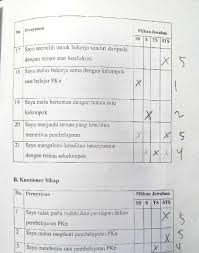 No Pernyataan Pilihan Jawaban
SS S TS STS
17 Saya memilih untuk bekerja sendiri daripada
dengan teman saat berdiskusi X 5
18 Saya malas bekerja sama dengan kelompok
saat belajar PKn X 1
19 Saya malu berteman dengan teman satu
kelompok X 2
20 Saya menjauhi teman yang kesulitan
menerima pembelajaran X 5
21 Saya mengalami kesulitan bekerjasama
dengan teman sekelompok X 4
B. Kuesioner Sikap
No. Pernyataan Pilihan Jawaban
SS S TS STS
Saya tidak perlu melakukan persiapan dalam
pembelajaran PKn X 5
Saya malas mengikuti pembelajaran PKn X 5
Saya pembelajaran PKn X 4